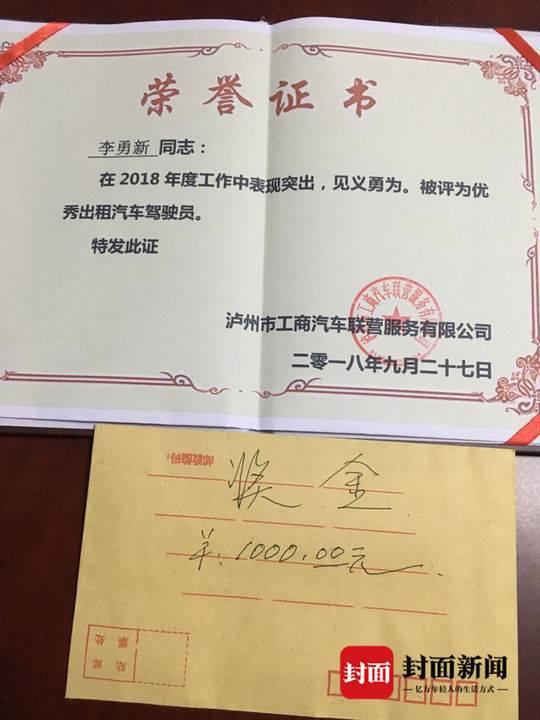 荣誉证书
李勇新 同志：
在2018年度工作中表现突出，见义勇为。被评为优
秀出租汽车驾驶员。
特发此证
泸州市工商汽车联营服务有限公司
二零一八年九月二十七日
邮政编码：
奖金
￥：1000.00元
封面
封面新闻
亿万年轻人的生活方式